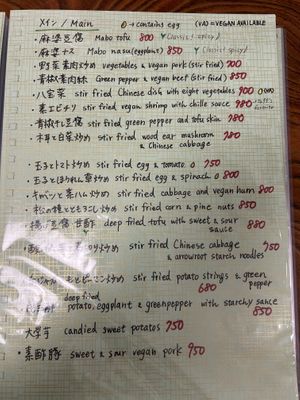 メイン / Main → contains egg (VA) = VEGAN AVAILABLE
・麻婆豆腐 Mabo tofu 800 (Classic! spicy)
・麻婆ナス Mabo nasu (eggplant) 850 (Classic! spicy)
・野菜素肉炒め vegetables & vegan pork (stir fried) 700
・青椒素肉絲 Green pepper & vegan beef (stir fried) 850
・八宝菜 stir fried Chinese dish with eight vegetables 900
・素エビチリ stir fried vegan shrimp with chille sauce 980
・青椒干し豆腐 stir fried green pepper and tofu skin 780
・木耳と白菜炒め stir fried wood ear mushroom & Chinese cabbage 780
・玉子とトマト炒め stir fried egg & tomato 750
・玉子とほうれん草炒め stir fried egg & spinach 800
・キャベツと素ハム炒め stir fried cabbage and vegan ham 800
・松の実ともろこし炒め stir fried corn & pine nuts 850
・揚げ豆腐 甘酢 deep fried tofu with sweet & sour sauce 880
炒め stir fried Chinese cabbage & arrowroot starch noodles 950
ピーマン炒め stir fried potato strings & green pepper 680
deep fried potato, eggplant & greenpepper with starchy sauce 850
・大学芋 candied sweet potatos 750
・素酢豚 sweet & sour vegan pork 950